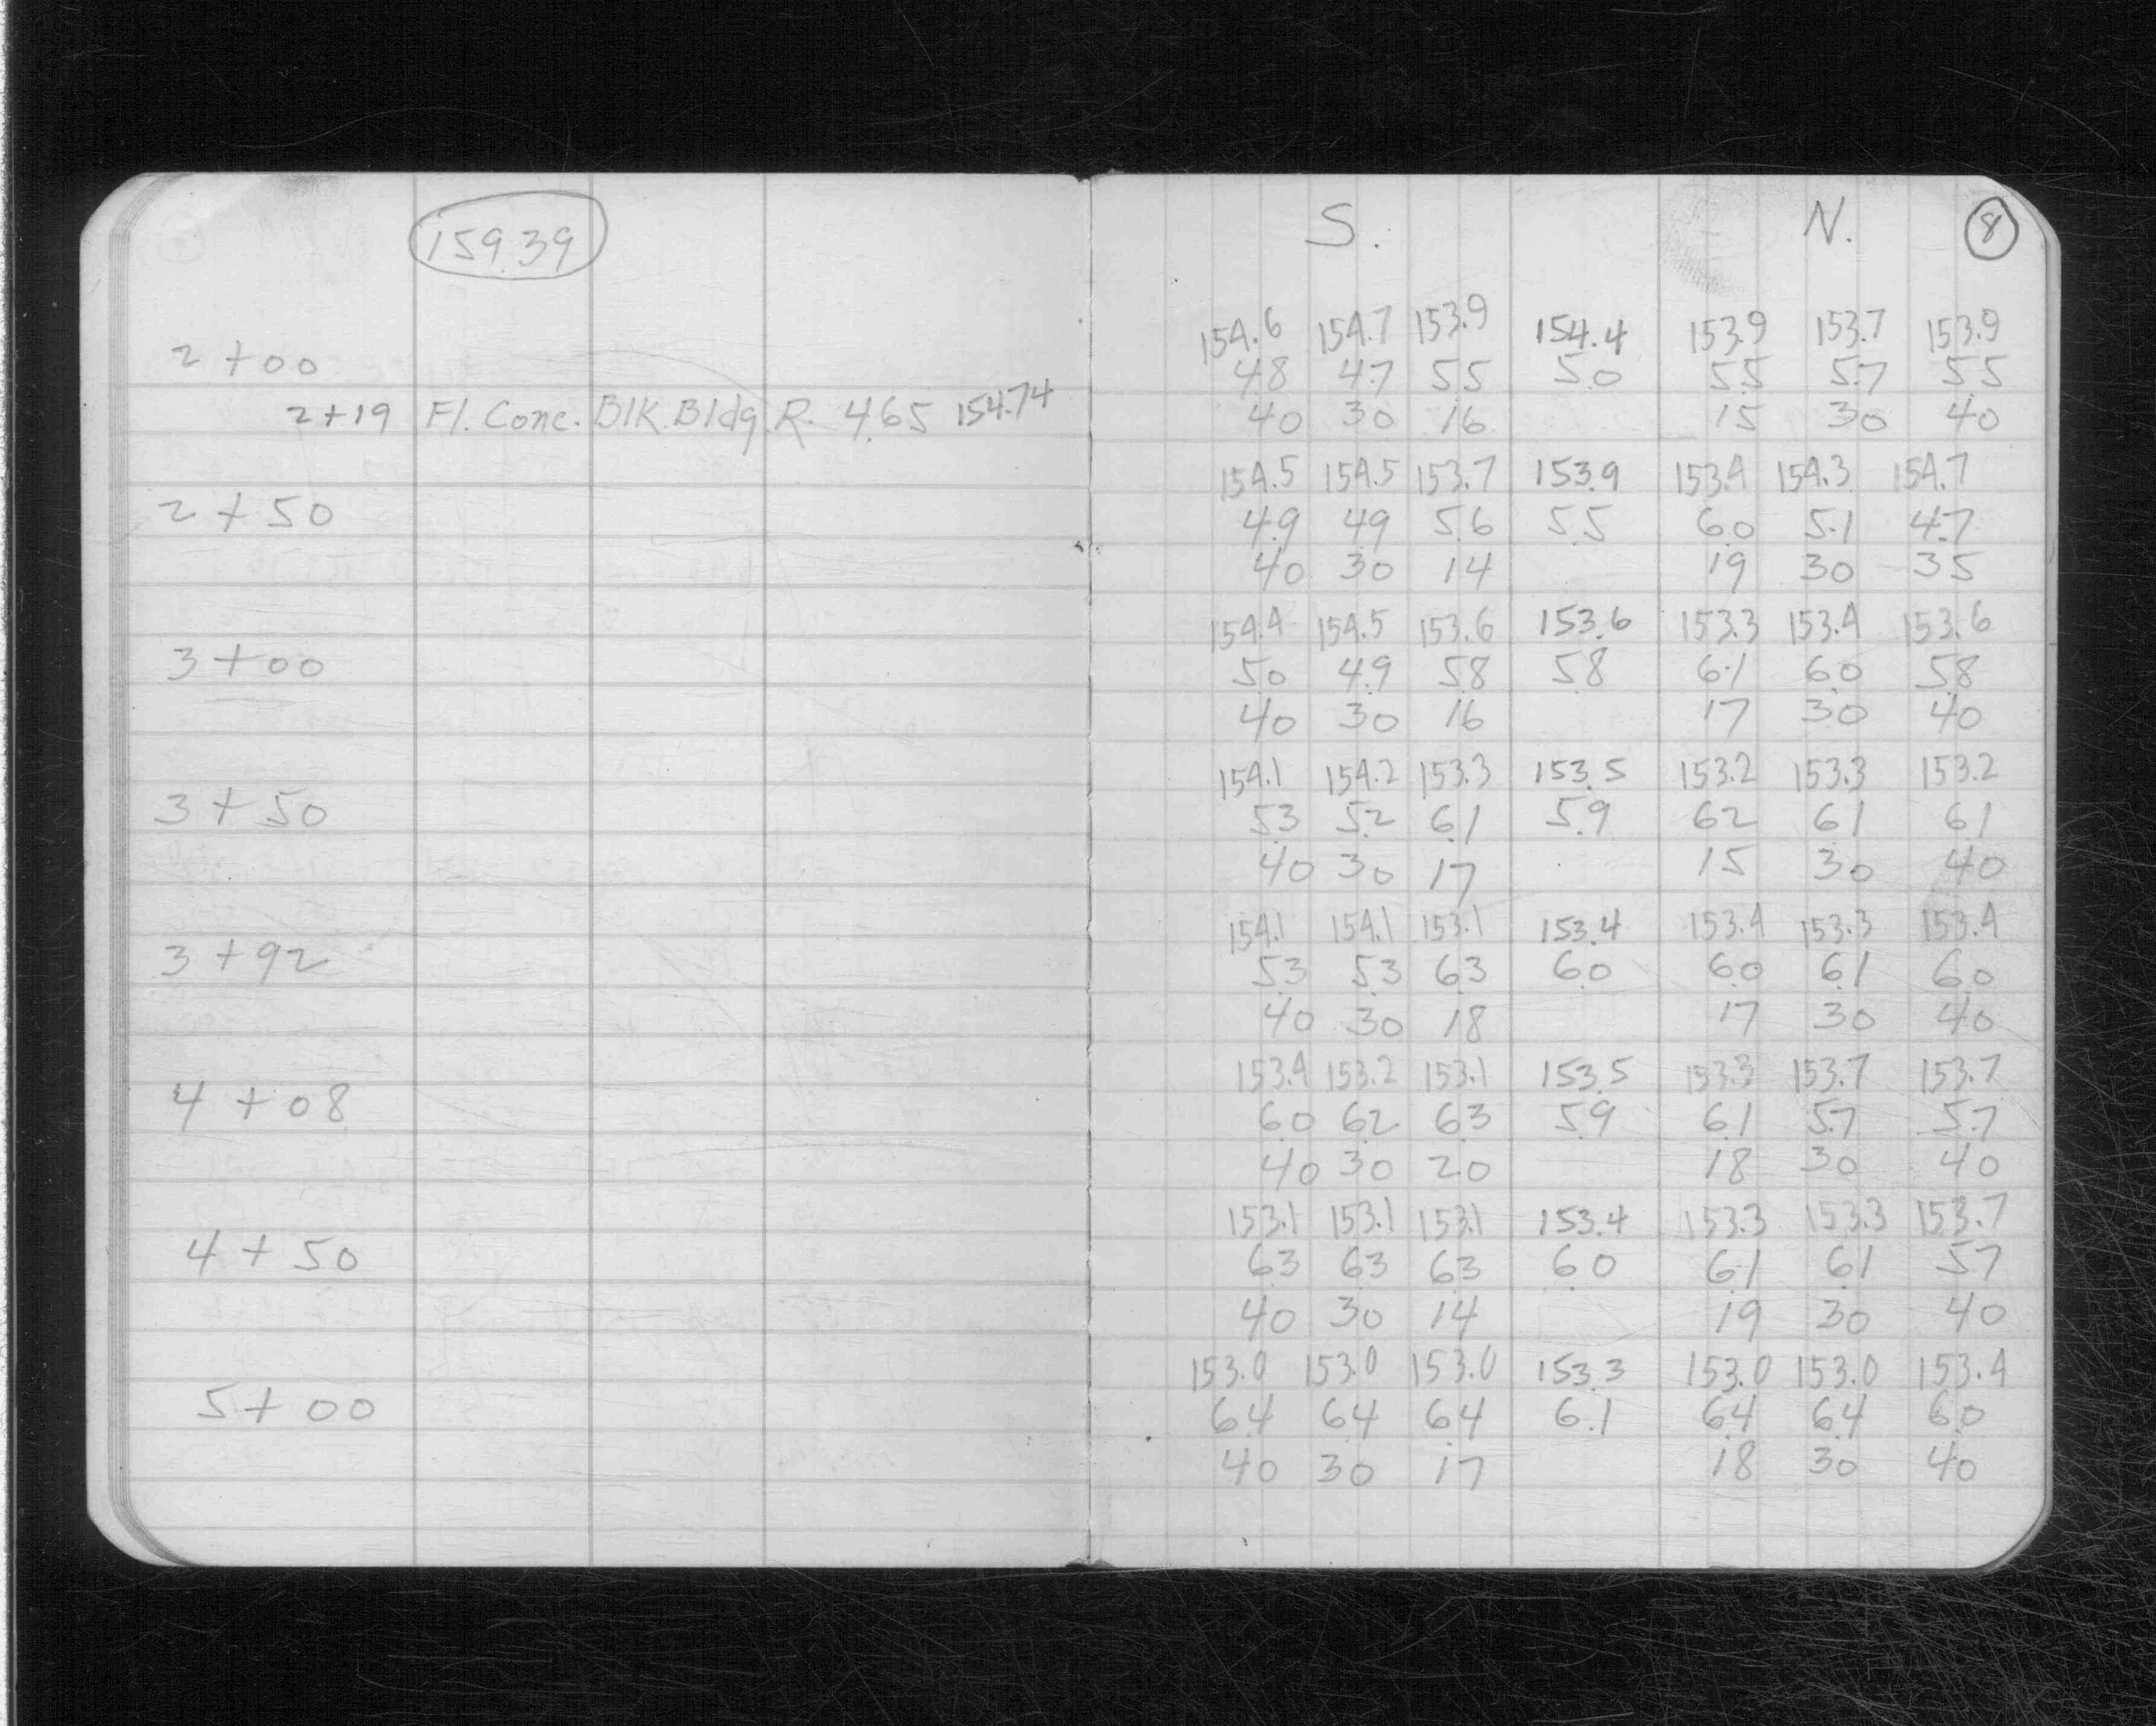 159.39
S. N. 8
154.6 154.7 153.9 154.4 153.9 153.7 153.9
2+00 4.8 4.7 5.5 5.0 5.5 5.7 5.5
2+19 Fl. Conc. Blk. Bldg R. 4.65 154.74 40 30 16 15 30 40
154.5 154.5 153.7 153.9 153.4 154.3 154.7
2+50 4.9 4.9 5.6 5.5 6.0 5.1 4.7
40 30 14 19 30 35
154.4 154.5 153.6 153.6 153.3 153.4 153.6
3+00 5.0 4.9 5.8 5.8 6.1 6.0 5.8
40 30 16 17 30 40
154.1 154.2 153.3 153.5 153.2 153.3 153.2
3+50 5.3 5.2 6.1 5.9 6.2 6.1 6.1
40 30 17 15 30 40
154.1 154.1 153.1 153.4 153.4 153.3 153.4
3+92 5.3 5.3 6.3 6.0 6.0 6.1 6.0
40 30 18 17 30 40
153.4 153.2 153.1 153.5 153.3 153.7 153.7
4+08 6.0 6.2 6.3 5.9 6.1 5.7 5.7
40 30 20 18 30 40
153.1 153.1 153.1 153.4 153.3 153.3 153.7
4+50 6.3 6.3 6.3 6.0 6.1 6.1 5.7
40 30 14 19 30 40
153.0 153.0 153.0 153.3 153.0 153.0 153.4
5+00 6.4 6.4 6.4 6.1 6.4 6.4 6.0
40 30 17 18 30 40